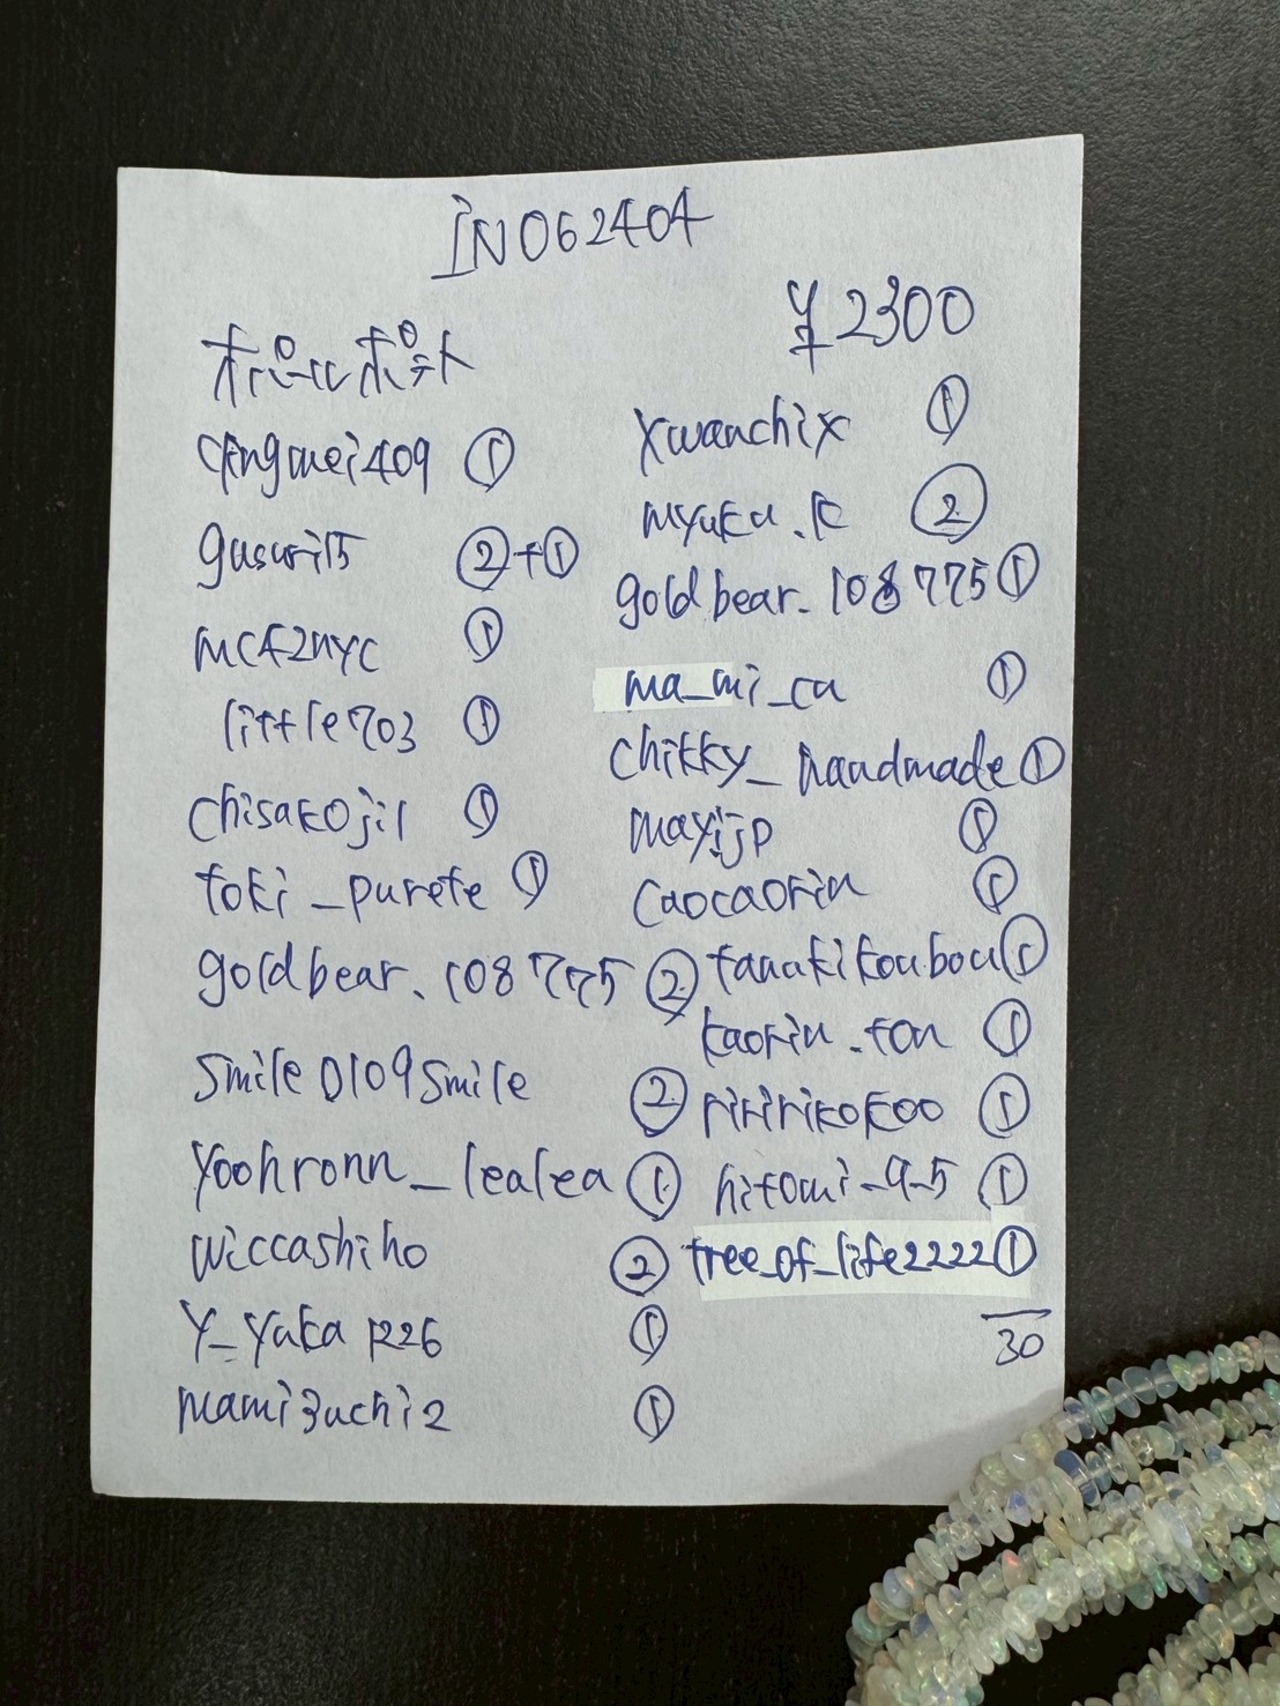 IN062404
¥2300
オパールポスト
qingmei409 ①
gusuri15 ②+①
mc42nyc ①
little703 ①
chisakoji1 ①
toki_purete ①
goldbear.108775 ②
smile0109smile ②
yoohronn_lealea ①
wiccashiho ②
y_yuka1226 ①
mami3uchi2 ①
xwanchix ①
myuka.k ②
goldbear.108775 ①
ma_mi_ca ①
chikky_handmade ①
mayijp ①
caocaorin ①
tanukikoubou ①
kaorin.ton ①
riririkokoo ①
hitomi_9_5 ①
tree_of_life2222 ①
30